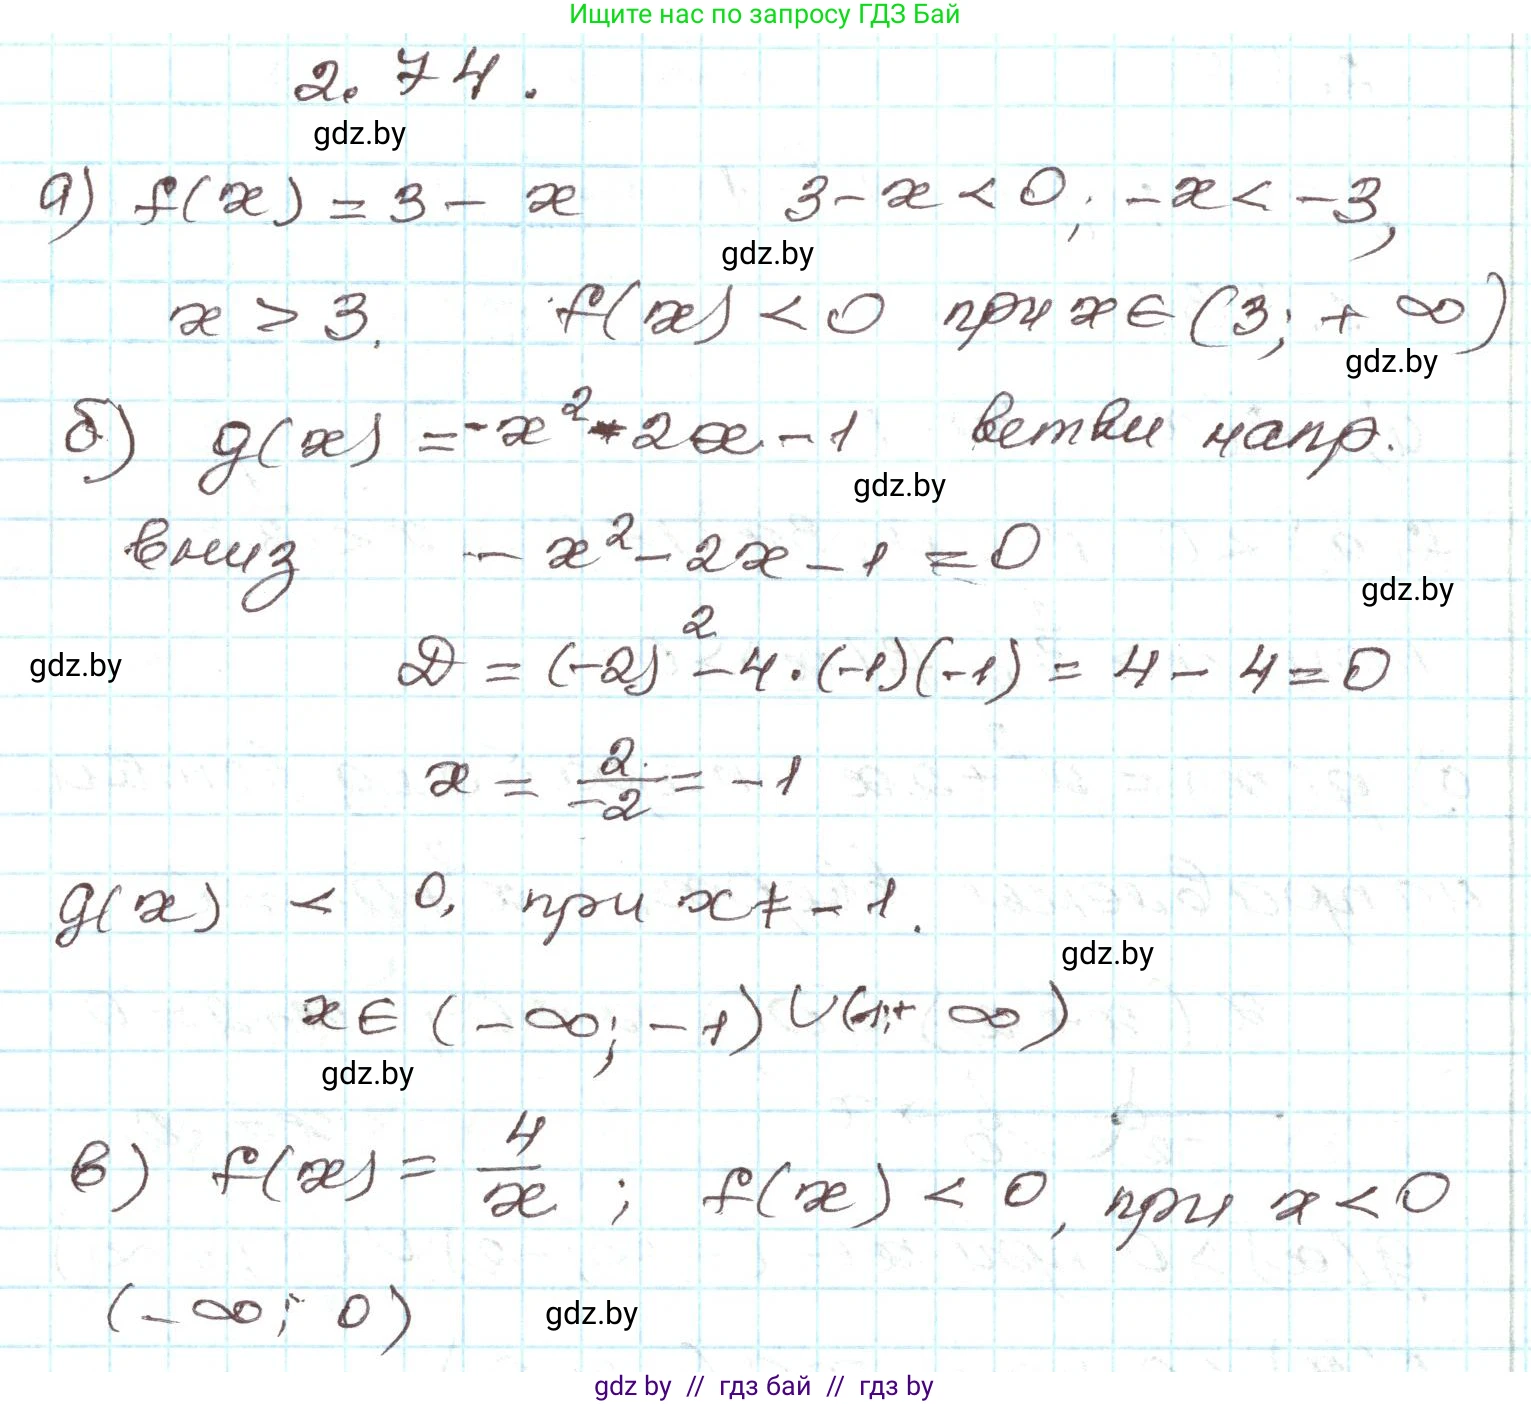 Ищите нас по запросу ГДЗ Бай
2.74.
gdz.by
а) f(x) = 3 - x 3 - x < 0; -x < -3,
gdz.by
x > 3. f(x) < 0 при x ∈ (3; + ∞)
gdz.by
б) g(x) = -x² - 2x - 1 ветви напр.
gdz.by
вниз - x² - 2x - 1 = 0
gdz.by
gdz.by D = (-2)² - 4·(-1)(-1) = 4 - 4 = 0
x = 2/-2 = -1
g(x) < 0, при x ≠ -1.
gdz.by
x ∈ (-∞; -1) ∪ (-1;+ ∞)
gdz.by
в) f(x) = 4/x ; f(x) < 0, при x < 0
(-∞; 0) gdz.by
gdz by // гдз бай // гдз by